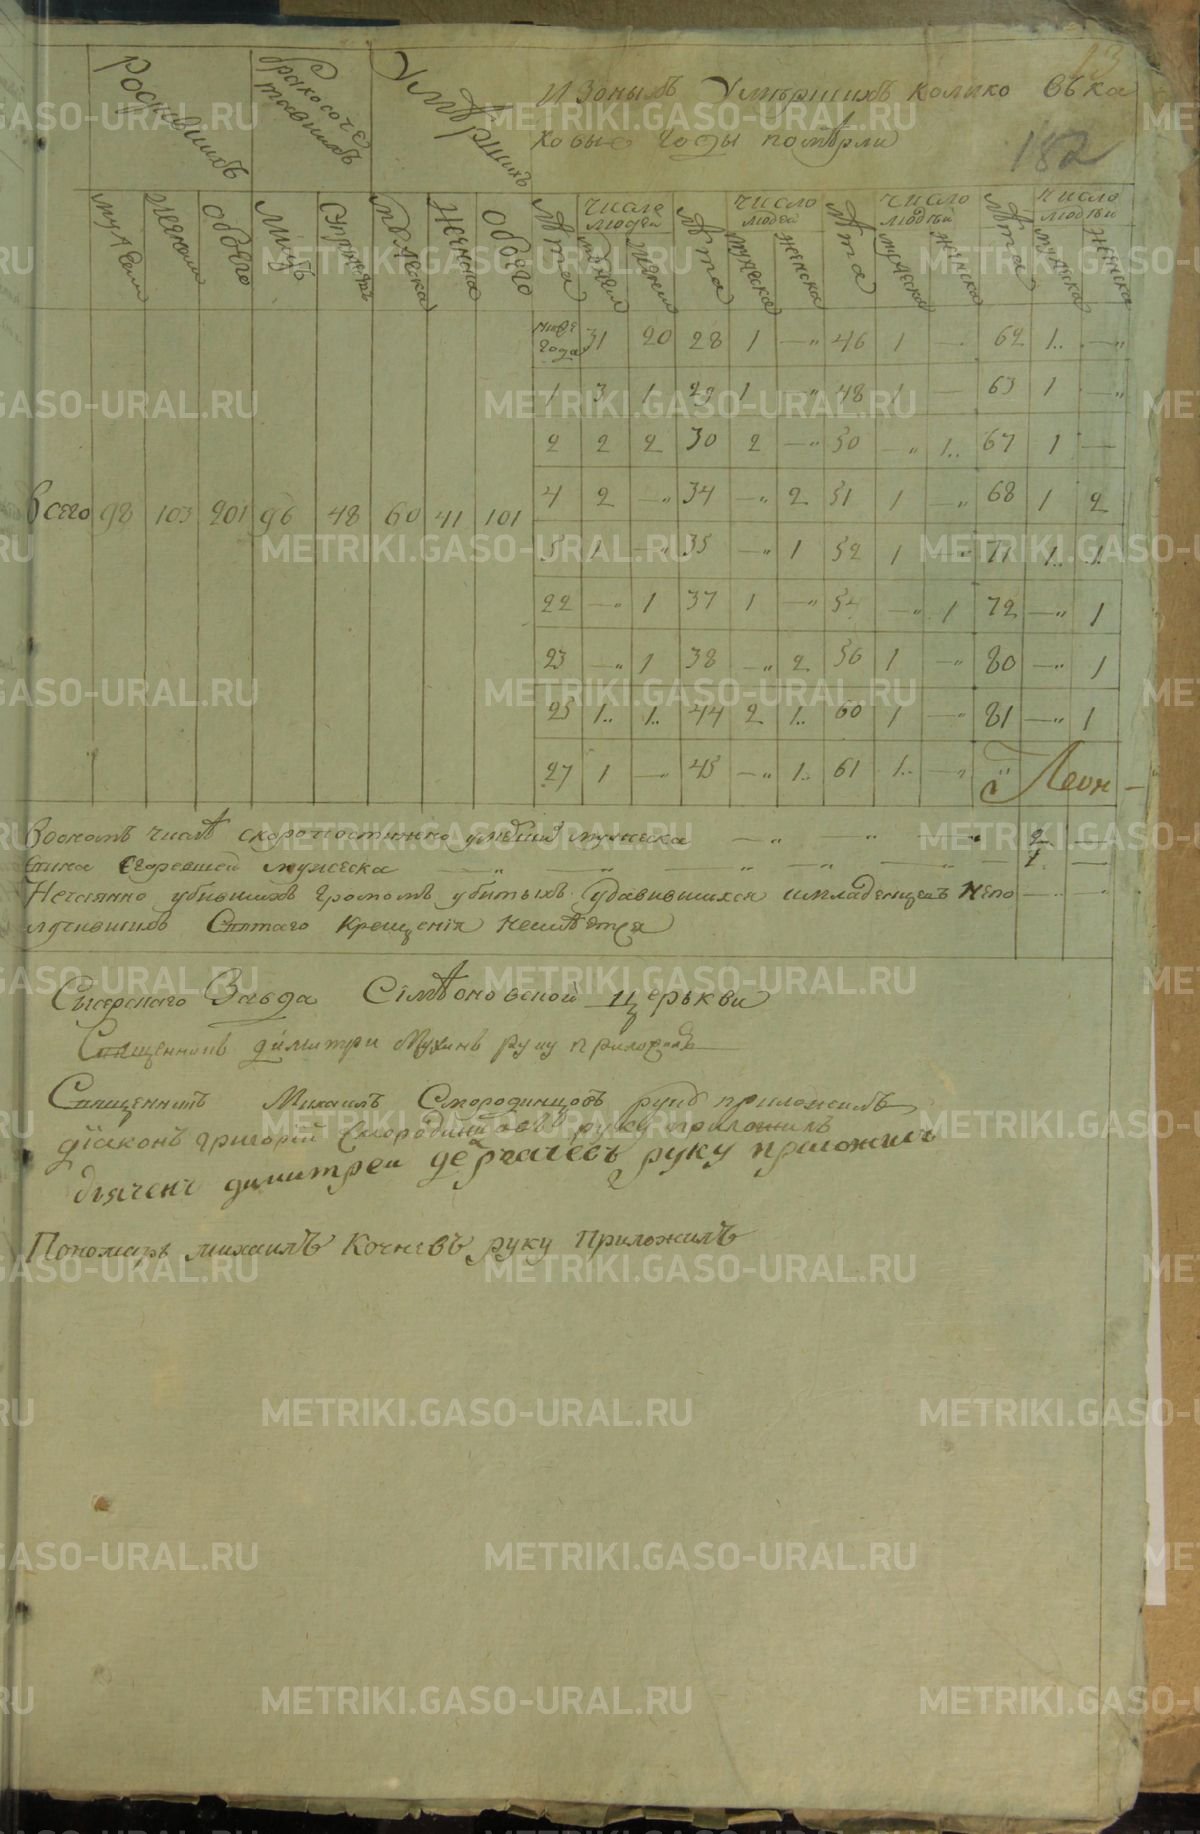 13
182
Родившихъ
бракосоче
тавшихъ
Умѣршихъ
Изоныхъ Умѣршихъ колико въка
ковые годы помѣрли
мужеска женска обоего лицъ супружевъ мужеска женска обоего лѣта число людей мужеска женска лѣта число людей мужеска женска лѣта число людей мужеска женска лѣта число людей мужеска женска
ниже года 31 20 28 1 —" 46 1 — 62 1.. —"
1 3 1 29 1 —" 48 1 — 63 1 —"
2 2 2 30 2 —" 50 —" 1.. 67 1 —
всего 98 103 201 96 48 60 41 101
4 2 —" 34 —" 2 51 1 —" 68 1 2
5 1 —" 35 —" 1 52 1 —" 71 1.. 1.
22 —" 1 37 1 —" 54 —" 1 72 —" 1
23 —" 1 38 —" 2 56 1 —" 80 —" 1
25 1.. 1.. 44 2 1.. 60 1 —" 81 —" 1
27 1 —" 45 —" 1.. 61 1.. —"
Воономъ числѣ скоропостижно умѣрши мужеска —" —" —" 2 —
сгоревшей мужеска —" —" —" —" 1. —
Нечаянно убившихъ громомъ убитыхъ удавившихся имладенцевъ непо —" —"
лучившихъ Святаго крещенія неимѣется
Сысерскаго Завода Сімѣоновской церькви
Священникъ димитри Мухинъ руку приложилъ
Священникъ Михаилъ Смородинцовъ руку приложилъ
діаконъ григорій Смородинцовъ руку приложилъ
дьячекъ димитреи дергачевъ руку приложилъ
Пономарь михаилъ Кочневъ руку приложилъ
METRIKI.GASO-URAL.RU